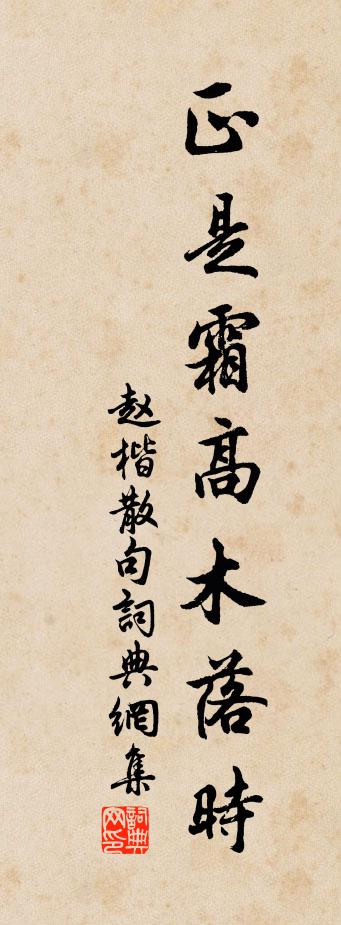 正是霜高木落時
赵楷散句詞典網集
詞典网印